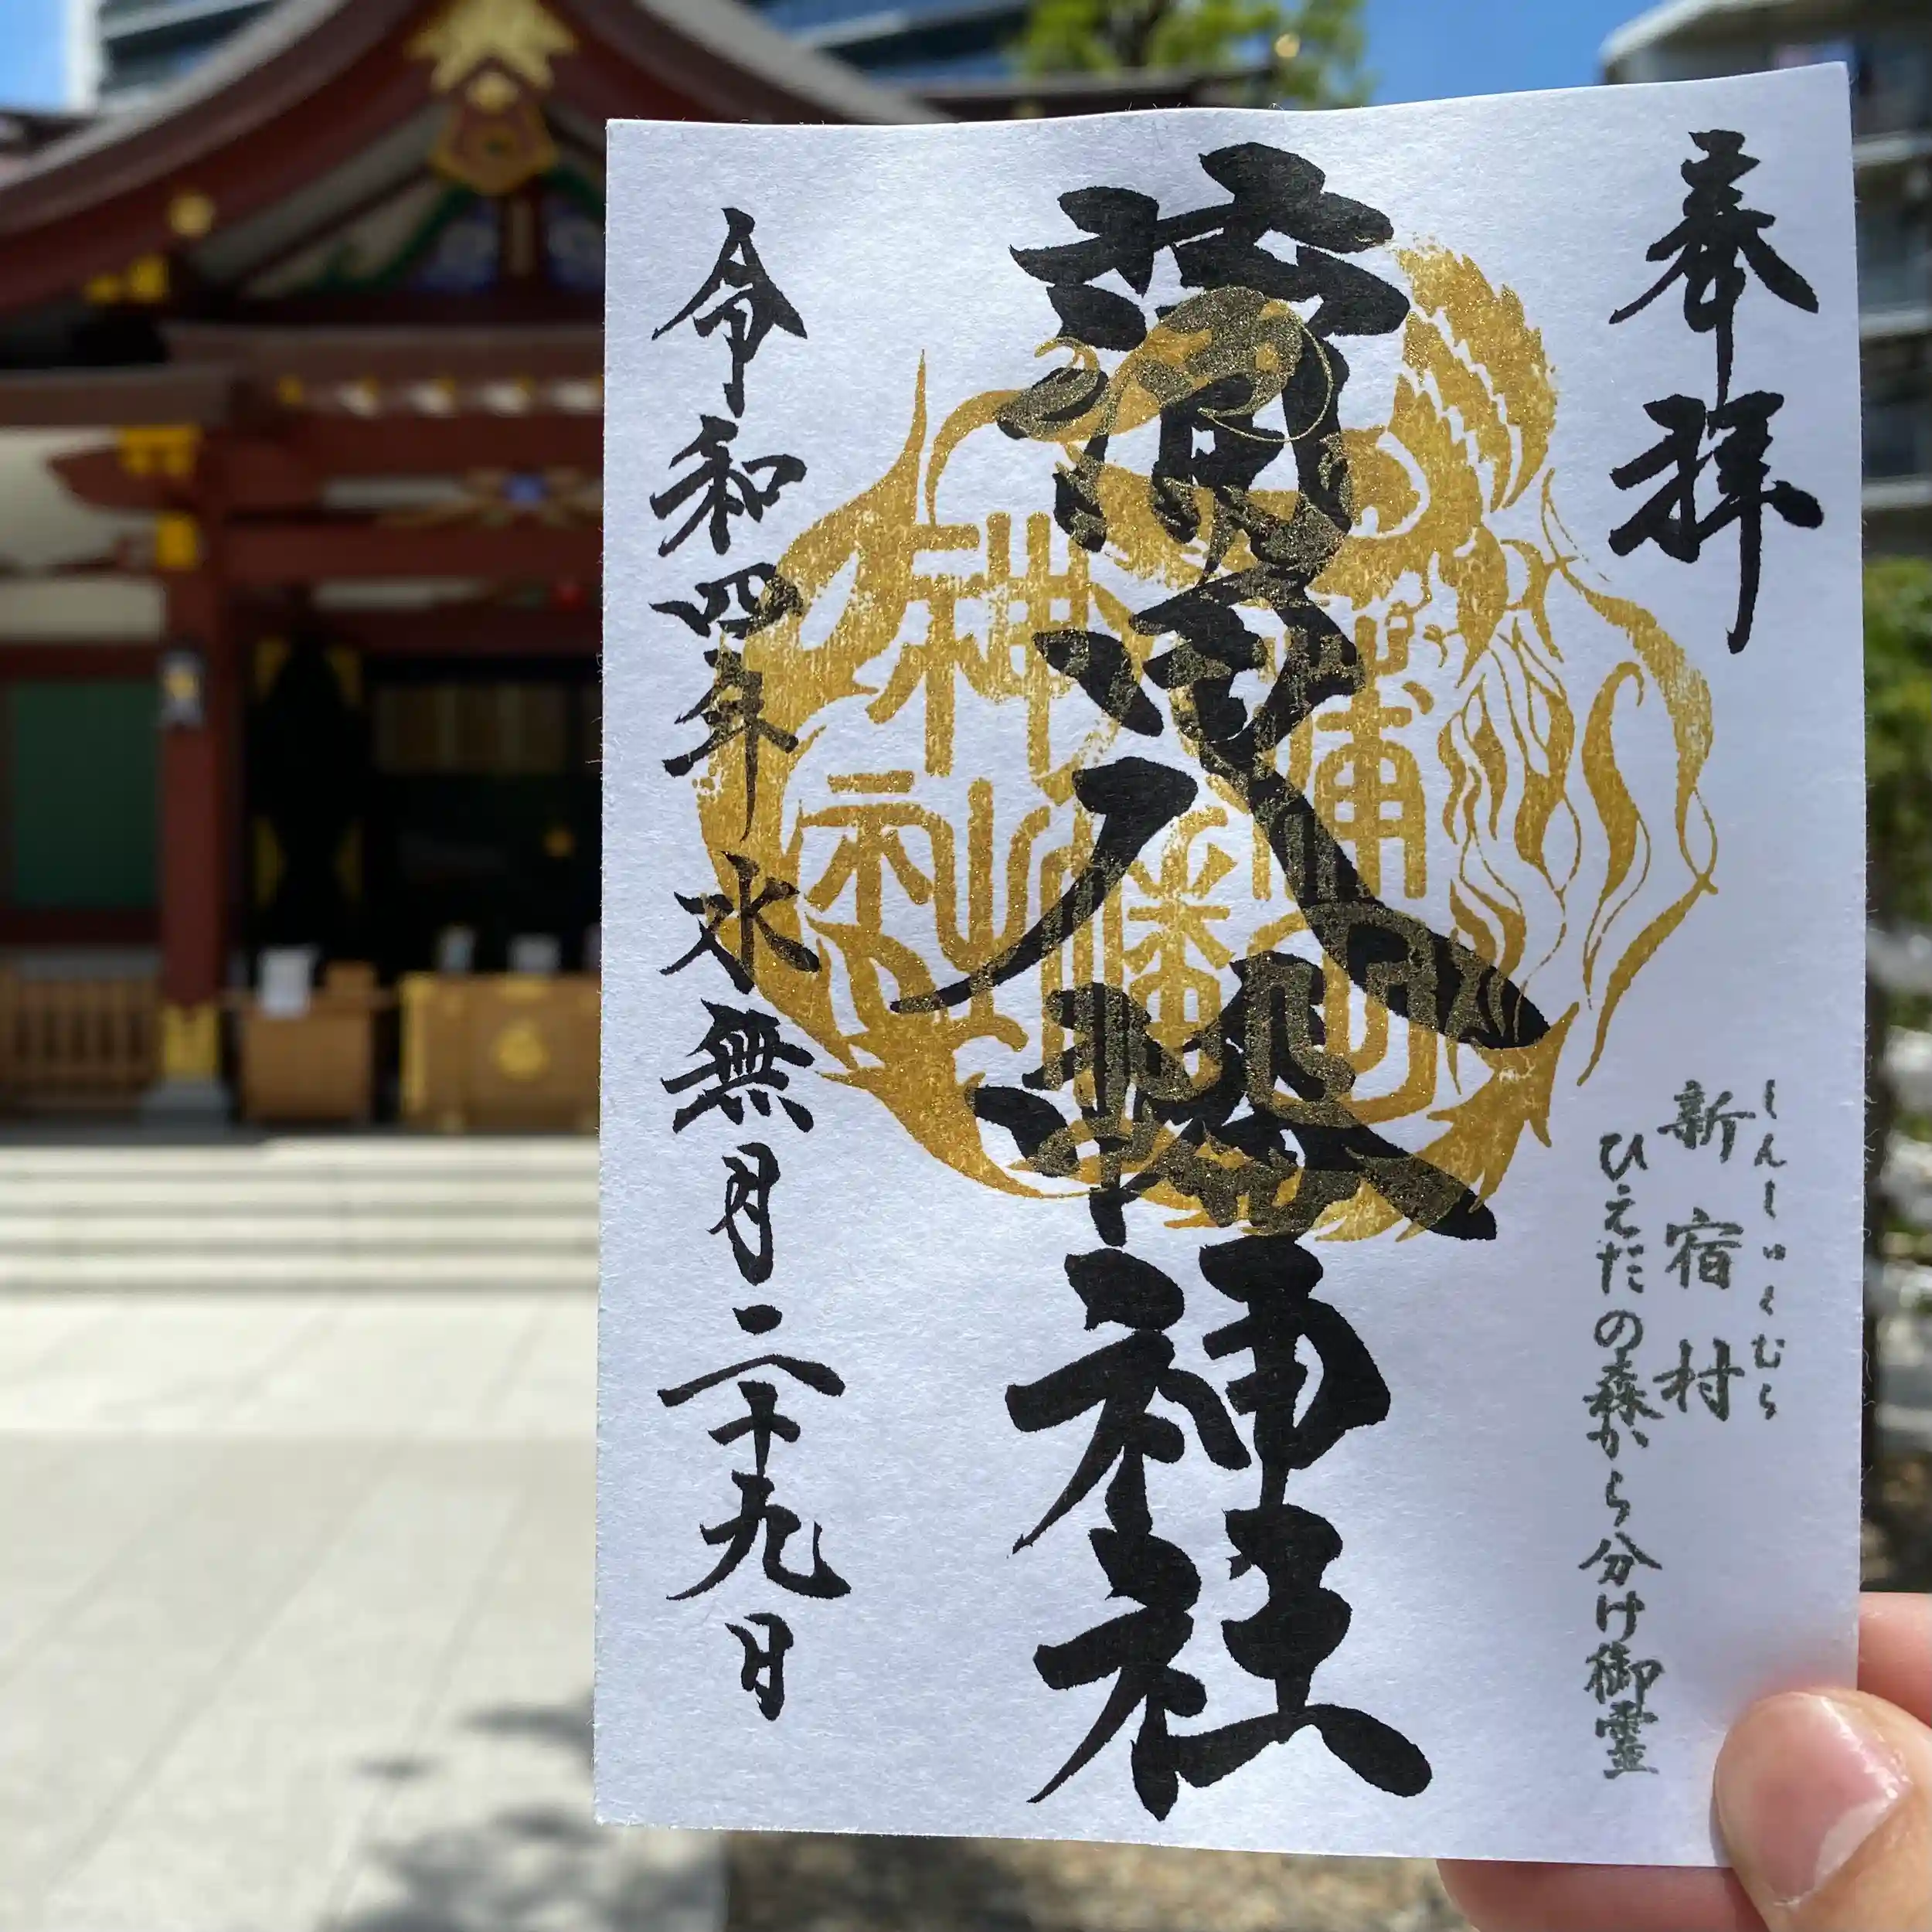 奉拝
しんしゅくむら
新宿村
ひえだの森から分け御霊
蒲田八幡神社
令和四年水無月二十九日
神社